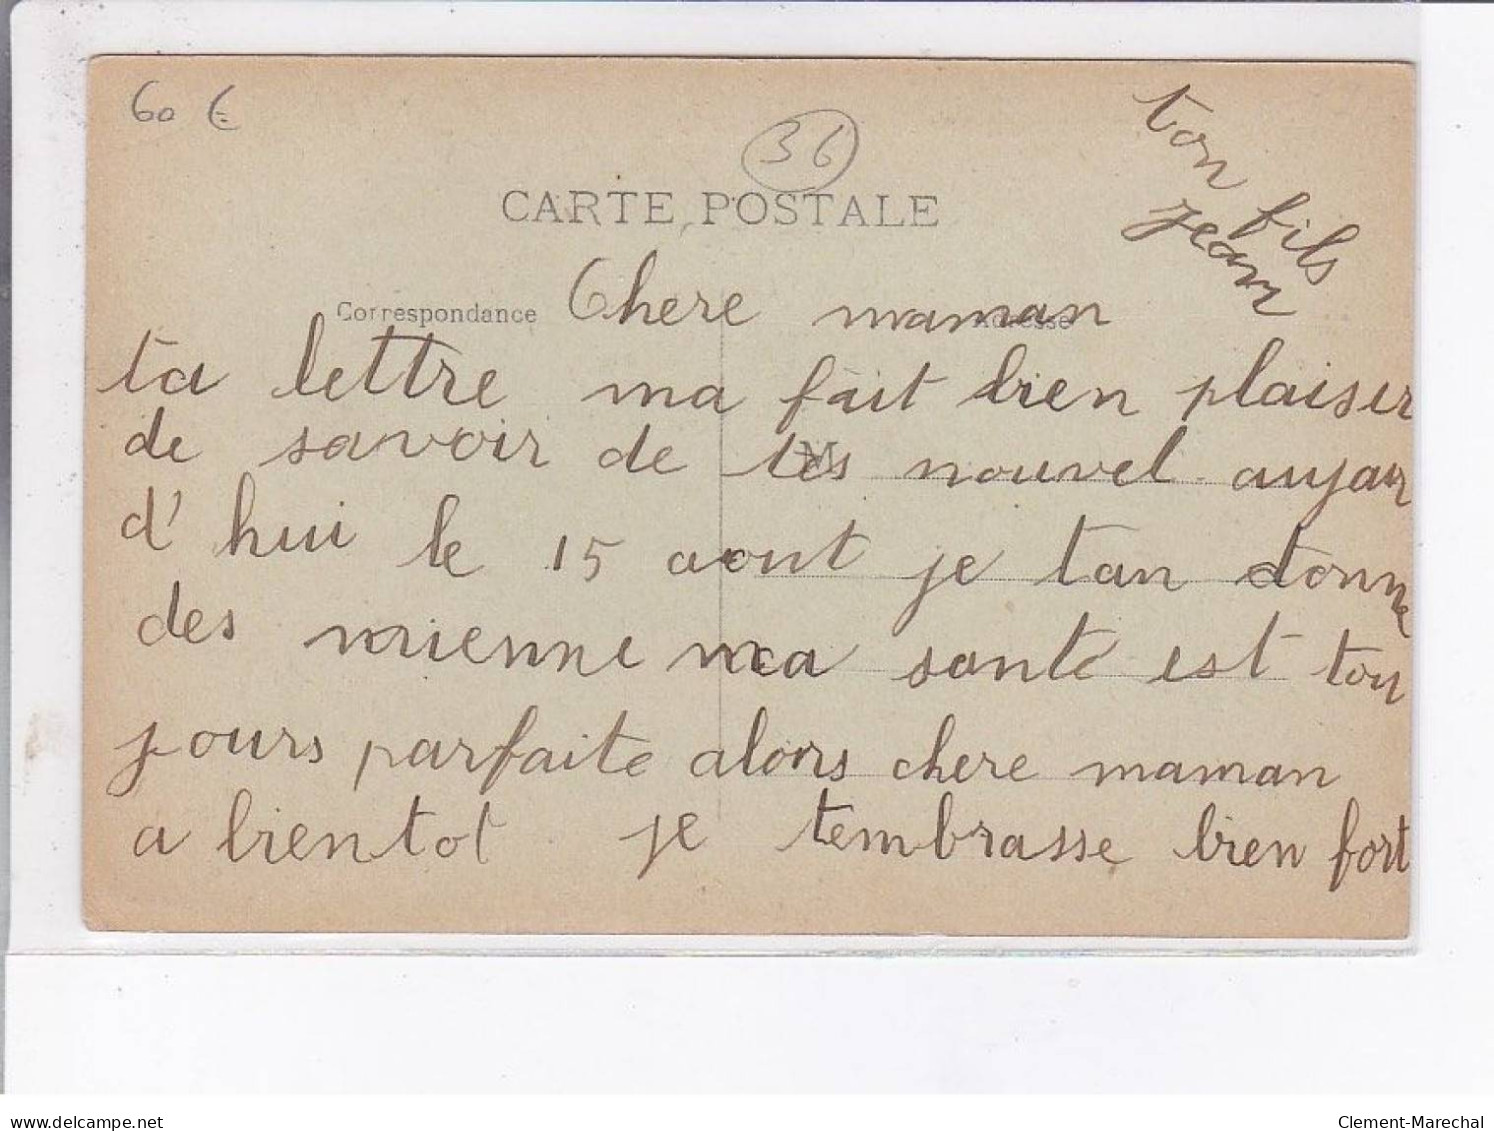 60 €
36
CARTE POSTALE
ton fils
jean
Correspondance
Adresse
Chere maman
ta lettre ma fait bien plaisir
de savoir de tes nouvel aujour
M
d'hui le 15 aout je tan donne
des mienne ma santé est tou
jours parfaite alors chere maman
a bientot je tembrasse bien fort
delcampe.net
Clement-Marechal